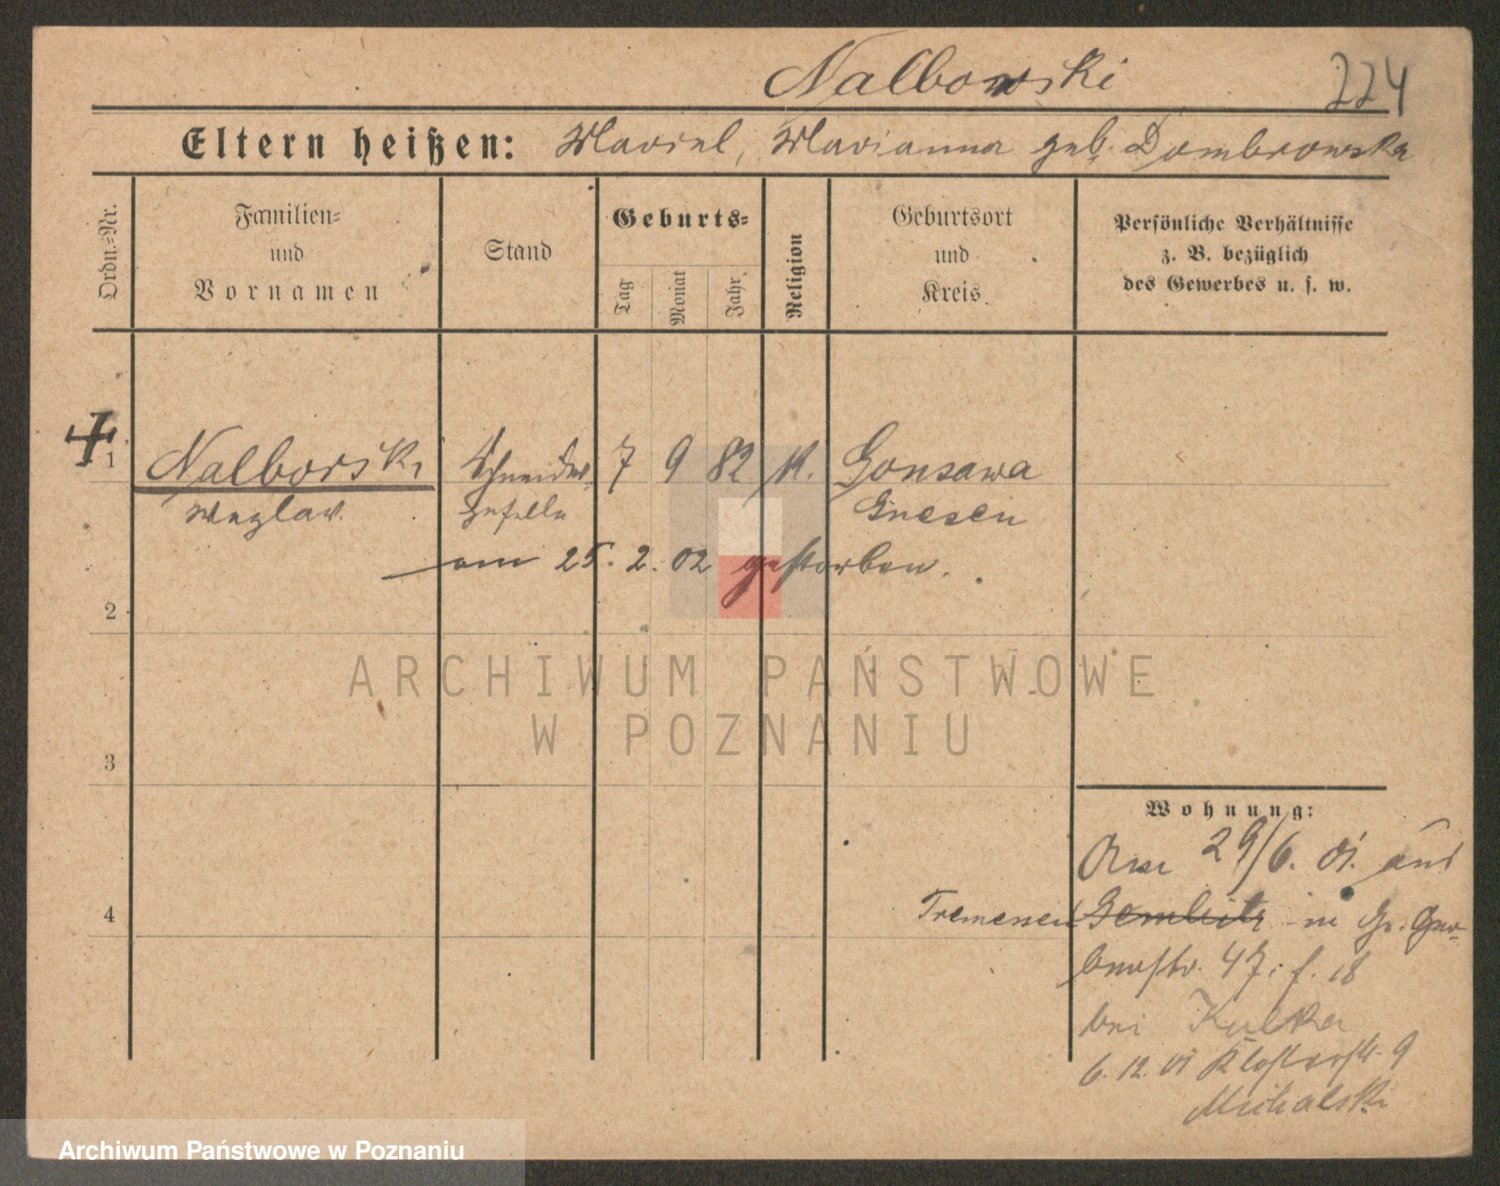 Nalbowski 224
Eltern heißen: Marcel, Marianna geb. Dombrowska
Ordn.-Nr.
Familien-
und
Vornamen
Stand
Geburts-
Tag
Monat
Jahr
Religion
Geburtsort
und
Kreis
Persönliche Verhältnisse
z. B. bezüglich
des Gewerbes u. s. w.
1 Nalborski Schneider- 7 9 82 k. Gonsawa
Wazlav. geselle Gnesen
am 25. 2. 02 gestorben.
2
ARCHIWUM PAŃSTWOWE
W POZNANIU
3
Wohnung:
29/6. 01. aus
4 Tremessen Gembitz in Gr. Ger-
berstr. 47 i. f. 18
bei Kulka
6. 12. 01 Klosterstr. 9
Michalski
Archiwum Państwowe w Poznaniu